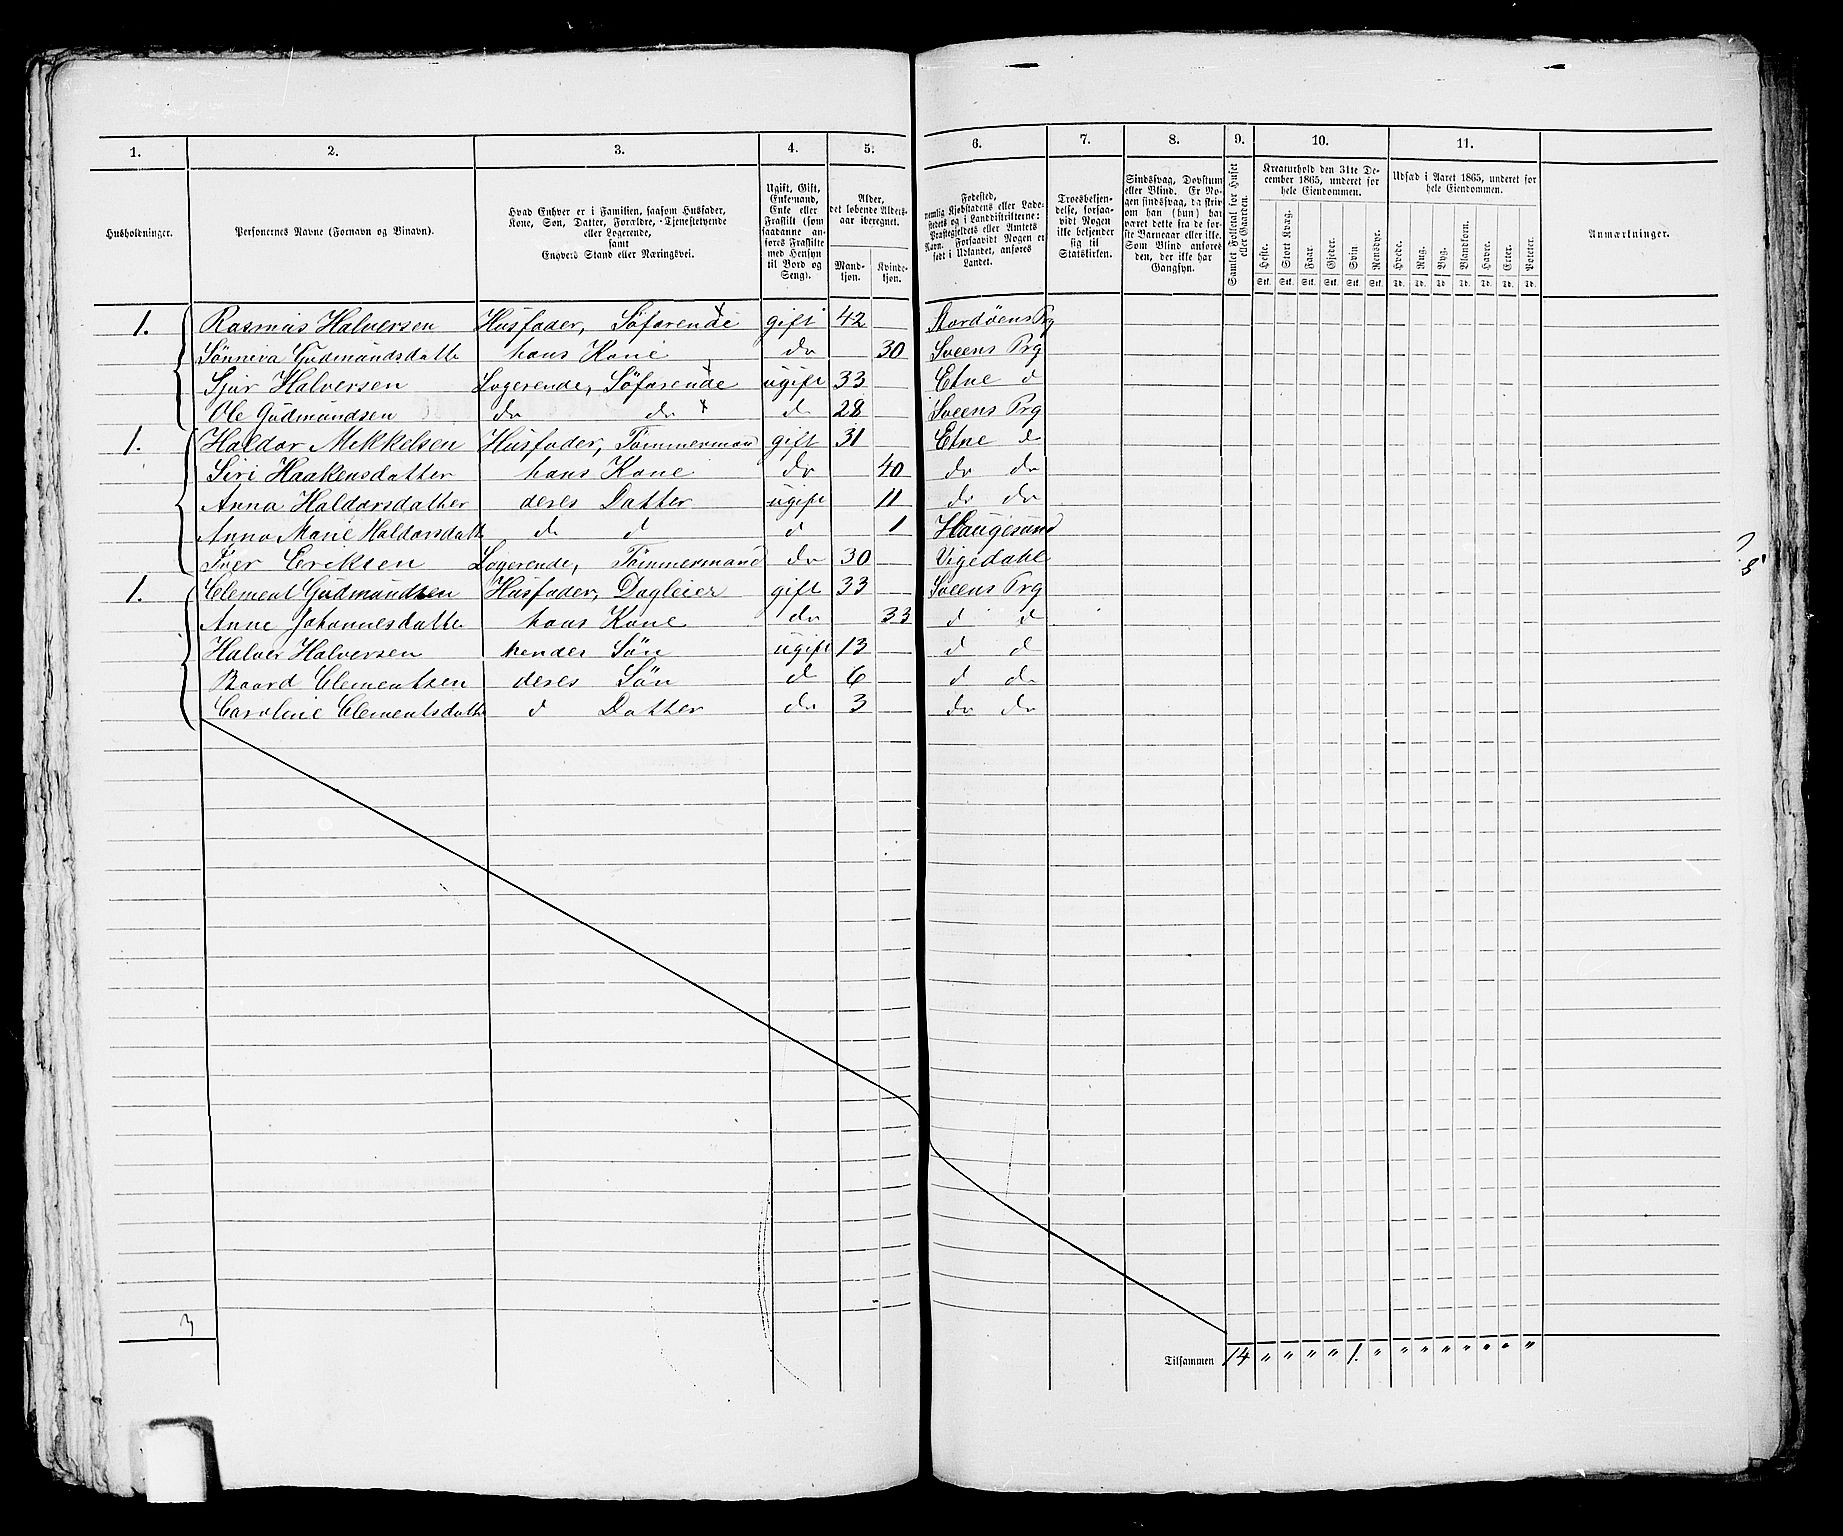 1. 2. 3. 4. 5. 6. 7. 8. 9. 10. 11.
Husholdninger.
Personernes Navne (Fornavn og Binavn).
Hvad Enhver er i Familien, saasom Husfader,
Kone, Søn, Datter, Forældre, Tjenestetyende
eller Logerende,
samt
Enhvers Stand eller Næringsvei.
Ugift, Gift,
Enkemand,
Enke eller
Fraskilt (som
saadanne an-
føres Fraskilte
med Hensyn
til Bord og
Seng).
Alder,
det løbende Alders-
aar iberegnet.
Mand-
kjøn.
Kvinde-
kjøn.
Fødested,
nemlig Kjøbstadens eller Lade-
stedets og i Landdistrikterne:
Præstegjeldets eller Amtets
Navn. Forsaavidt Nogen er
født i Udlandet, anføres
Landet.
Troesbekjen-
delse, forsaa-
vidt Nogen
ikke bekjender
sig til
Statskirken.
Sindssvag, Døvstum
eller Blind. Er No-
gen sindssvag, da skriv
om han (hun) har
været dette fra de før-
ste Barneaar eller ikke.
Som Blind anføres
den, der ikke har
Gangsyn.
Samlet Folketal for Huset
eller Gaarden.
Kreaturhold den 31te De-
cember 1865, underet for
hele Eiendommen.
Heste. Stort Kvæg. Faar. Gjeder. Svin. Rensdyr.
Stk. Stk. Stk. Stk. Stk. Stk.
Udsæd i Aaret 1865, underet for
hele Eiendommen.
Hvede. Rug. Byg. Blandkorn. Havre. Erter. Poteter.
Td. Td. Td. Td. Td. Td. Td.
Anmærkninger.
1. Rasmus Halversen Husfader, Søfarende gift 42 Stordøens Prg
Sønneva Gudmundsdatte hans Kone do 30 Sveens Prg
Sjur Halversen Logerende, Søfarende ugift 33 Etne d
Ole Gudmundsen do do d 28 Sveens Prg
1. Haldor Mikkelsen Husfader, Tømmermand gift 31 Etne d
Siri Haakensdatter hans Kone do 40 do do
Anna Haldorsdatter deres Datter ugift 11 do do
Anna Marie Haldorsdatte d d d 1 Haugesund
Iver Eriksen Logerende, Tømmermand do 30 Vigedahl
1. Clement Gudmundsen Husfader, Dagleier gift 33 Sveens Prg
Anne Johannesdatte hans Kone do 33 d d
Halver Halversen hendes Søn ugift 13 d d
Baard Clementsen deres Søn d 6 d do
Caroline Clementsdatte d Datter do 3 do do
3
Tilsammen 14 " " " " 1. " " " " " " " "